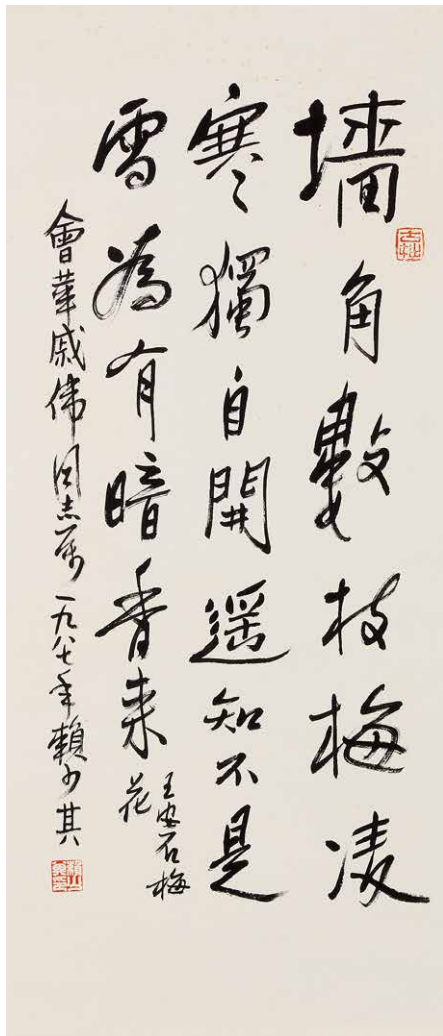 墻角數枝梅凌
寒獨自開遥知不是
雪為有暗香来
王安石梅
花
會華戚伟同志属 一九八七年賴少其